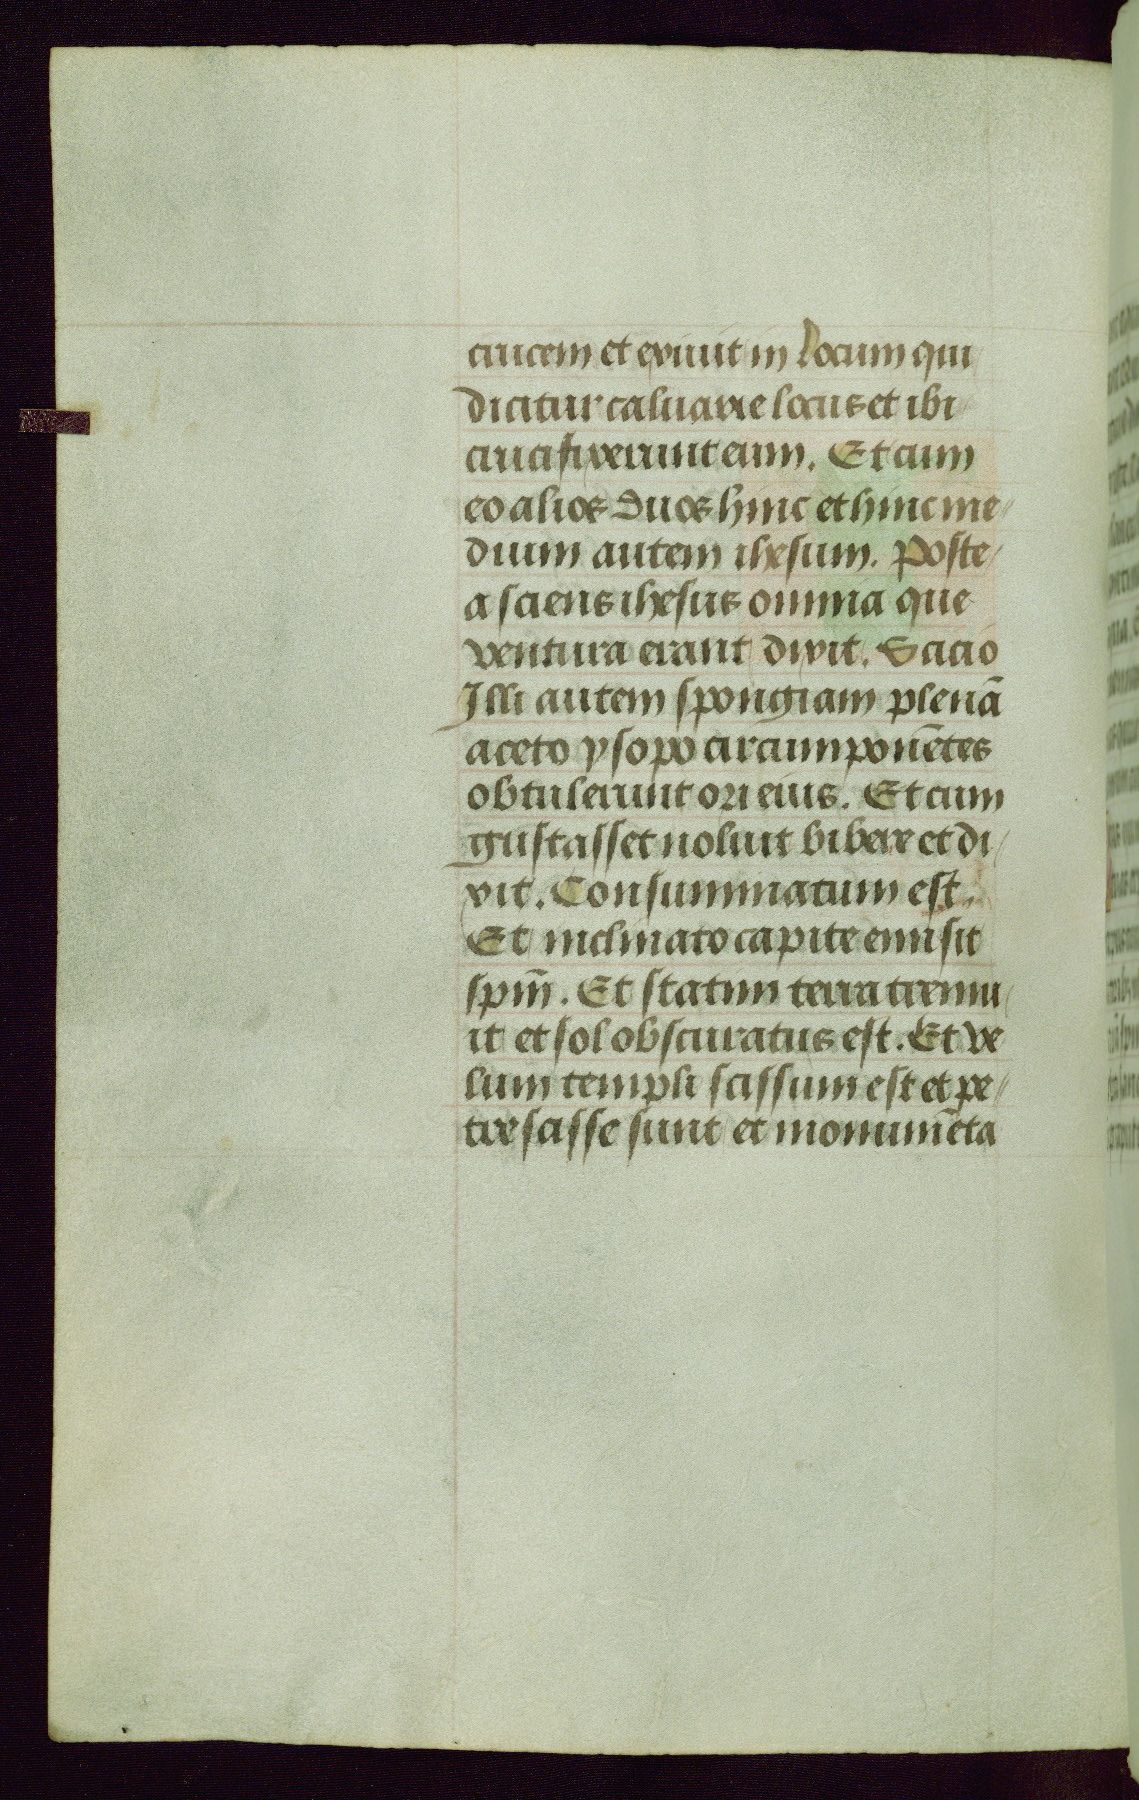 crucem et exiuit in locum qui
dicitur caluarie locus et ibi
crucifixerunt eum. Et cum
eo alios duos hinc et hinc me-
dium autem ihesum. Poste-
a sciens ihesus omnia que
ventura erant dixit. Scicio
Illi autem spongiam plenā
aceto ysopo circumponētes
obtulerunt ori eius. Et cum
gustasset noluit bibere et di
xit. Consummatum est.
Et inclinato capite emisit
spm̄. Et statim terra tremu
it et sol obscuratus est. Et ve
lum templi scissum est et pe-
tre scisse sunt et monumēta